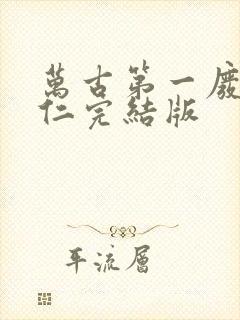 萬古第一廢
仁完結版
平流層